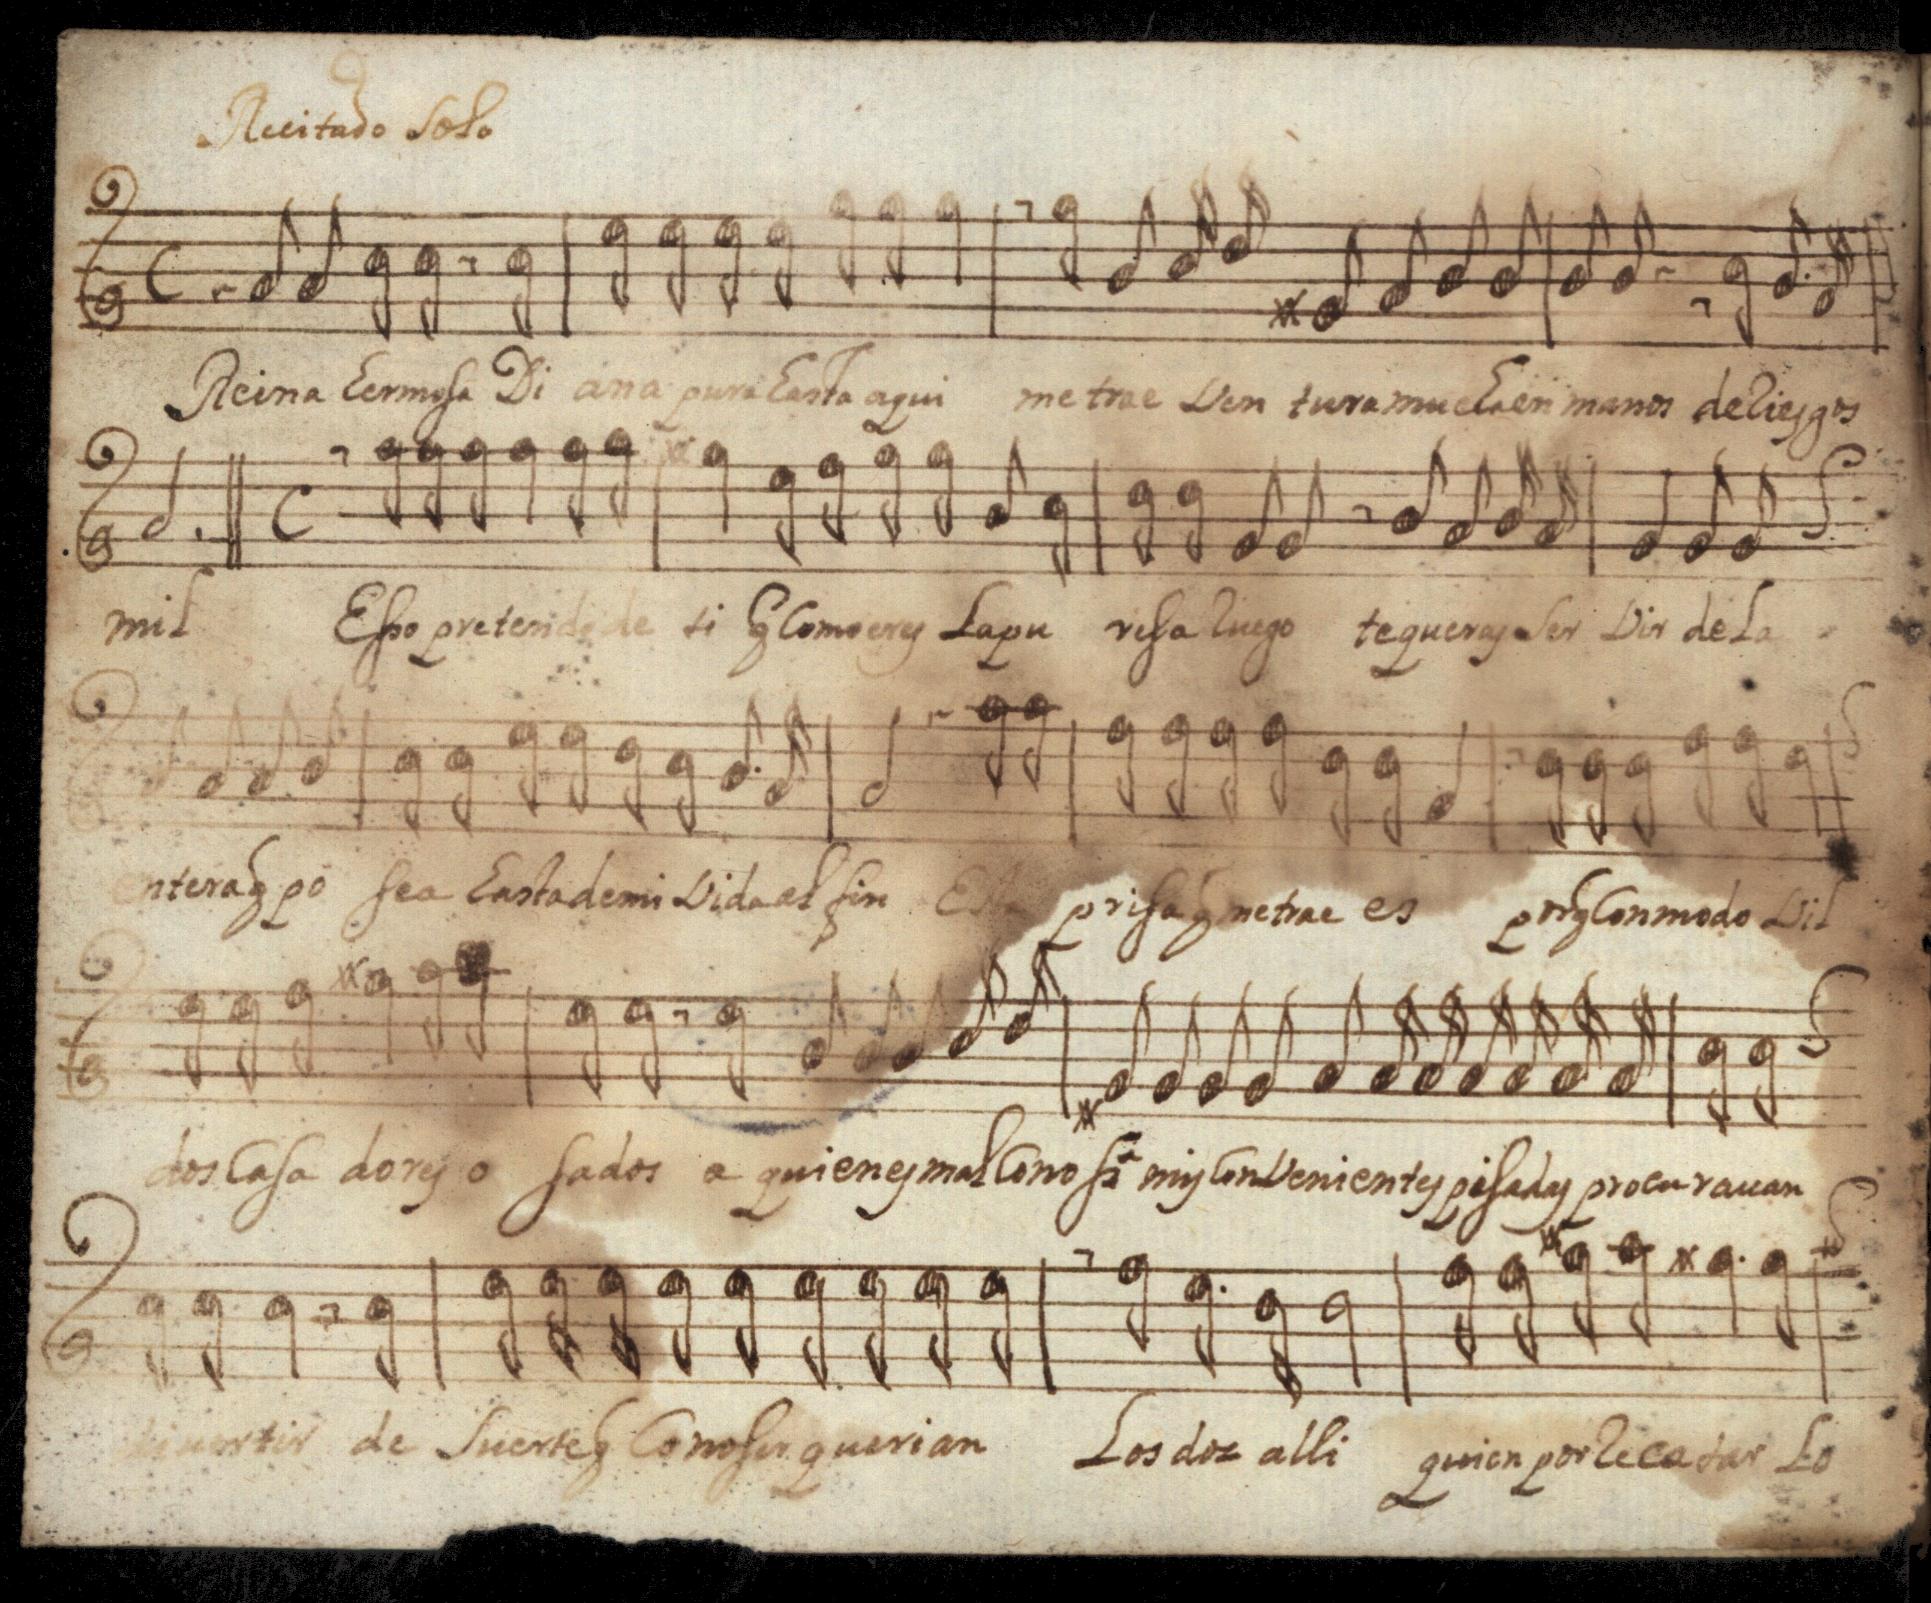 Recitado solo
Reina hermosa Di ana pura hasta aqui me trae Ven tura mucha en manos de riesgos
mil Esso pretende de ti q como eres La pu resa luego te queras ser Vir de La
entera q po sea hasta de mi Vida el fin Esta prisa q me trae es porq Con modo Vil
dos Casa dores o sados a quienes mal Conosi mis ConVenientes pisadas procurauan
diuertir de Suerte q Conoser querian Los dos alli quien por recatar Lo